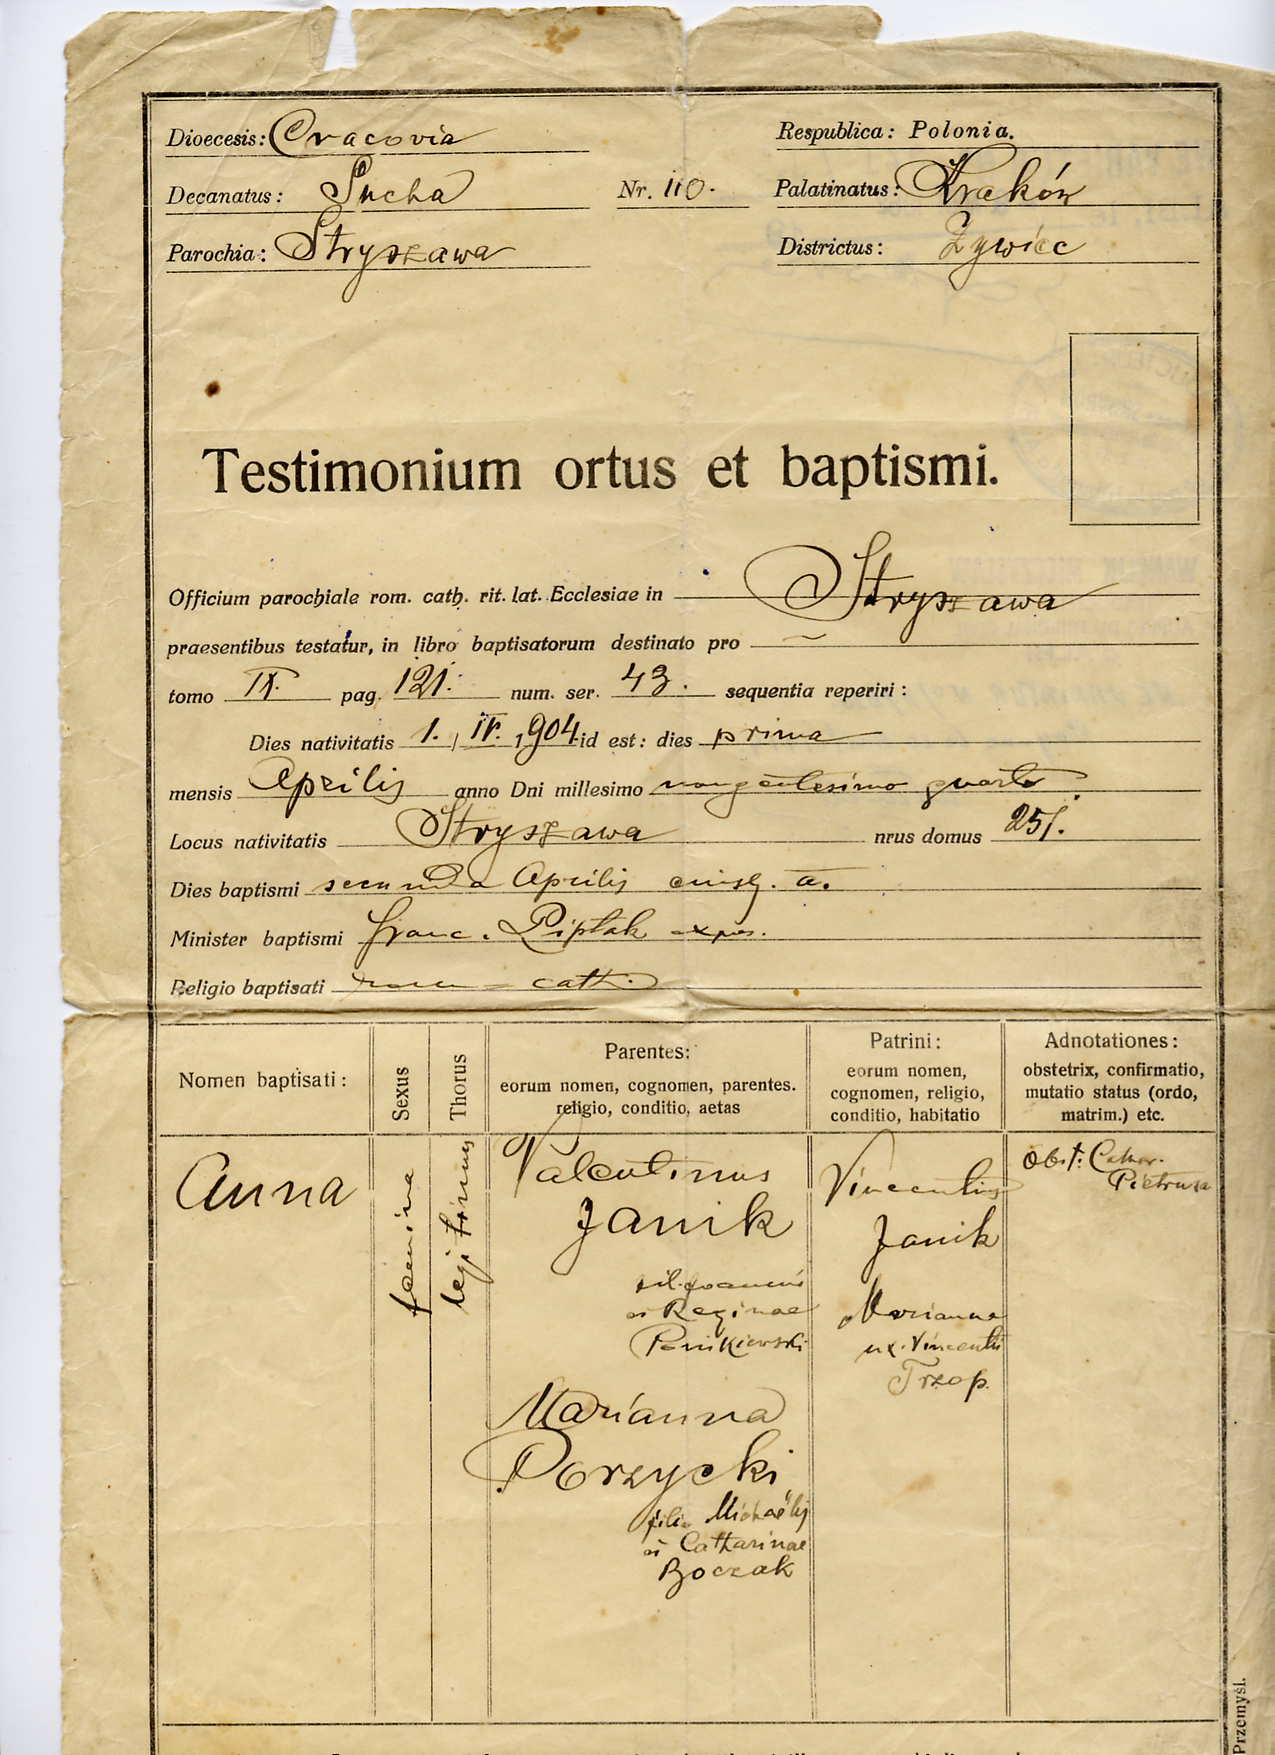 Dioecesis: Cracovia
Respublica: Polonia.
Decanatus: Sucha
Nr. 110.
Palatinatus: Kraków
Parochia: Stryszawa
Districtus: Żywiec
Testimonium ortus et baptismi.
Officium parochiale rom. cath. rit. lat. Ecclesiae in Stryszawa
praesentibus testatur, in libro baptisatorum destinato pro —
tomo IX. pag. 121. num. ser. 43. sequentia reperiri:
Dies nativitatis 1. / IV. 1904. id est: dies prima
mensis Aprilis anno Dni millesimo nongentesimo quarto
Locus nativitatis Stryszawa nrus domus 251.
Dies baptismi secunda Aprilis eiusd. a.
Minister baptismi Franc. Piptak expos.
Religio baptisati rom = cath.
Nomen baptisati:
Sexus
Thorus
Parentes:
eorum nomen, cognomen, parentes.
religio, conditio, aetas
Patrini:
eorum nomen,
cognomen, religio,
conditio, habitatio
Adnotationes:
obstetrix, confirmatio,
mutatio status (ordo,
matrim.) etc.
Anna
femina
legitimus
Valentinus
Janik
fil. Joannis
et Reginae
Ponikiewski
Marianna
Porzycki
filia Michaëlis
et Catharinae
Boczak
Vincentius
Janik
Marianna
ux. Vincentii
Trzop.
Obst. Cathar.
Pietrusa
Przemyśl.